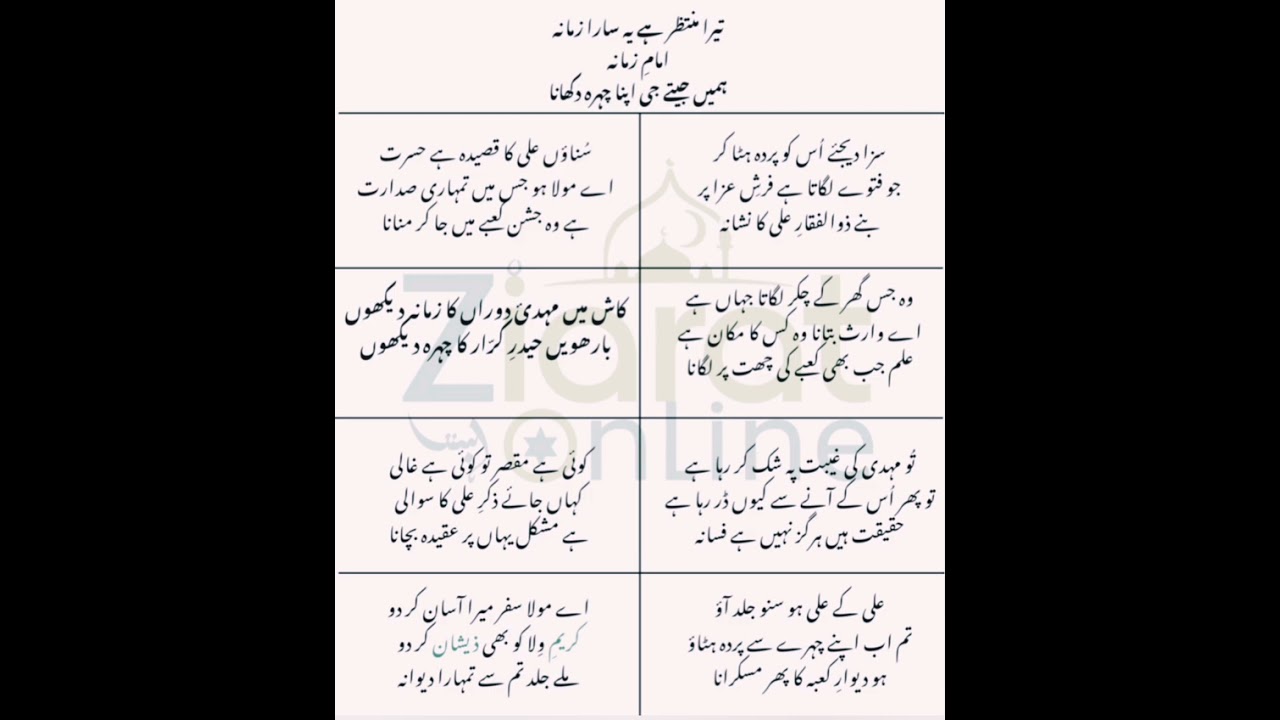 تیرا منتظر ہے یہ سارا زمانہ
امامِ زمانہ
ہمیں جیتے جی اپنا چہرہ دکھانا
سزا دیجئے اُس کو پردہ ہٹا کر
جو فتوے لگاتا ہے فرشِ عزا پر
بنے ذوالفقارِ علی کا نشانہ
سُناؤں علی کا قصیدہ ہے حسرت
اے مولا ہو جس میں تمہاری صدارت
ہے وہ جشن کعبے میں جا کر منانا
وہ جس گھر کے چکر لگاتا جہاں ہے
اے وارث بتانا وہ کس کا مکان ہے
علم جب بھی کعبے کی چھت پر لگانا
کاش میں مہدیٔ دوراں کا زمانہ دیکھوں
بارھویں حیدرِ کرّار کا چہرہ دیکھوں
تُو مہدی کی غیبت پہ شک کر رہا ہے
تو پھر اُس کے آنے سے کیوں ڈر رہا ہے
حقیقت ہیں ہرگز نہیں ہے فسانہ
کوئی ہے مقصر تو کوئی ہے غالی
کہاں جائے ذکرِ علی کا سوالی
ہے مشکل یہاں پر عقیدہ بچانا
علی کے علی ہو سنو جلد آؤ
تم اب اپنے چہرے سے پردہ ہٹاؤ
ہو دیوارِ کعبہ کا پھر مسکرانا
اے مولا سفر میرا آسان کر دو
کریمِ وِلا کو بھی ذیشان کر دو
ملے جلد تم سے تمہارا دیوانہ
Ziarat
OnLine